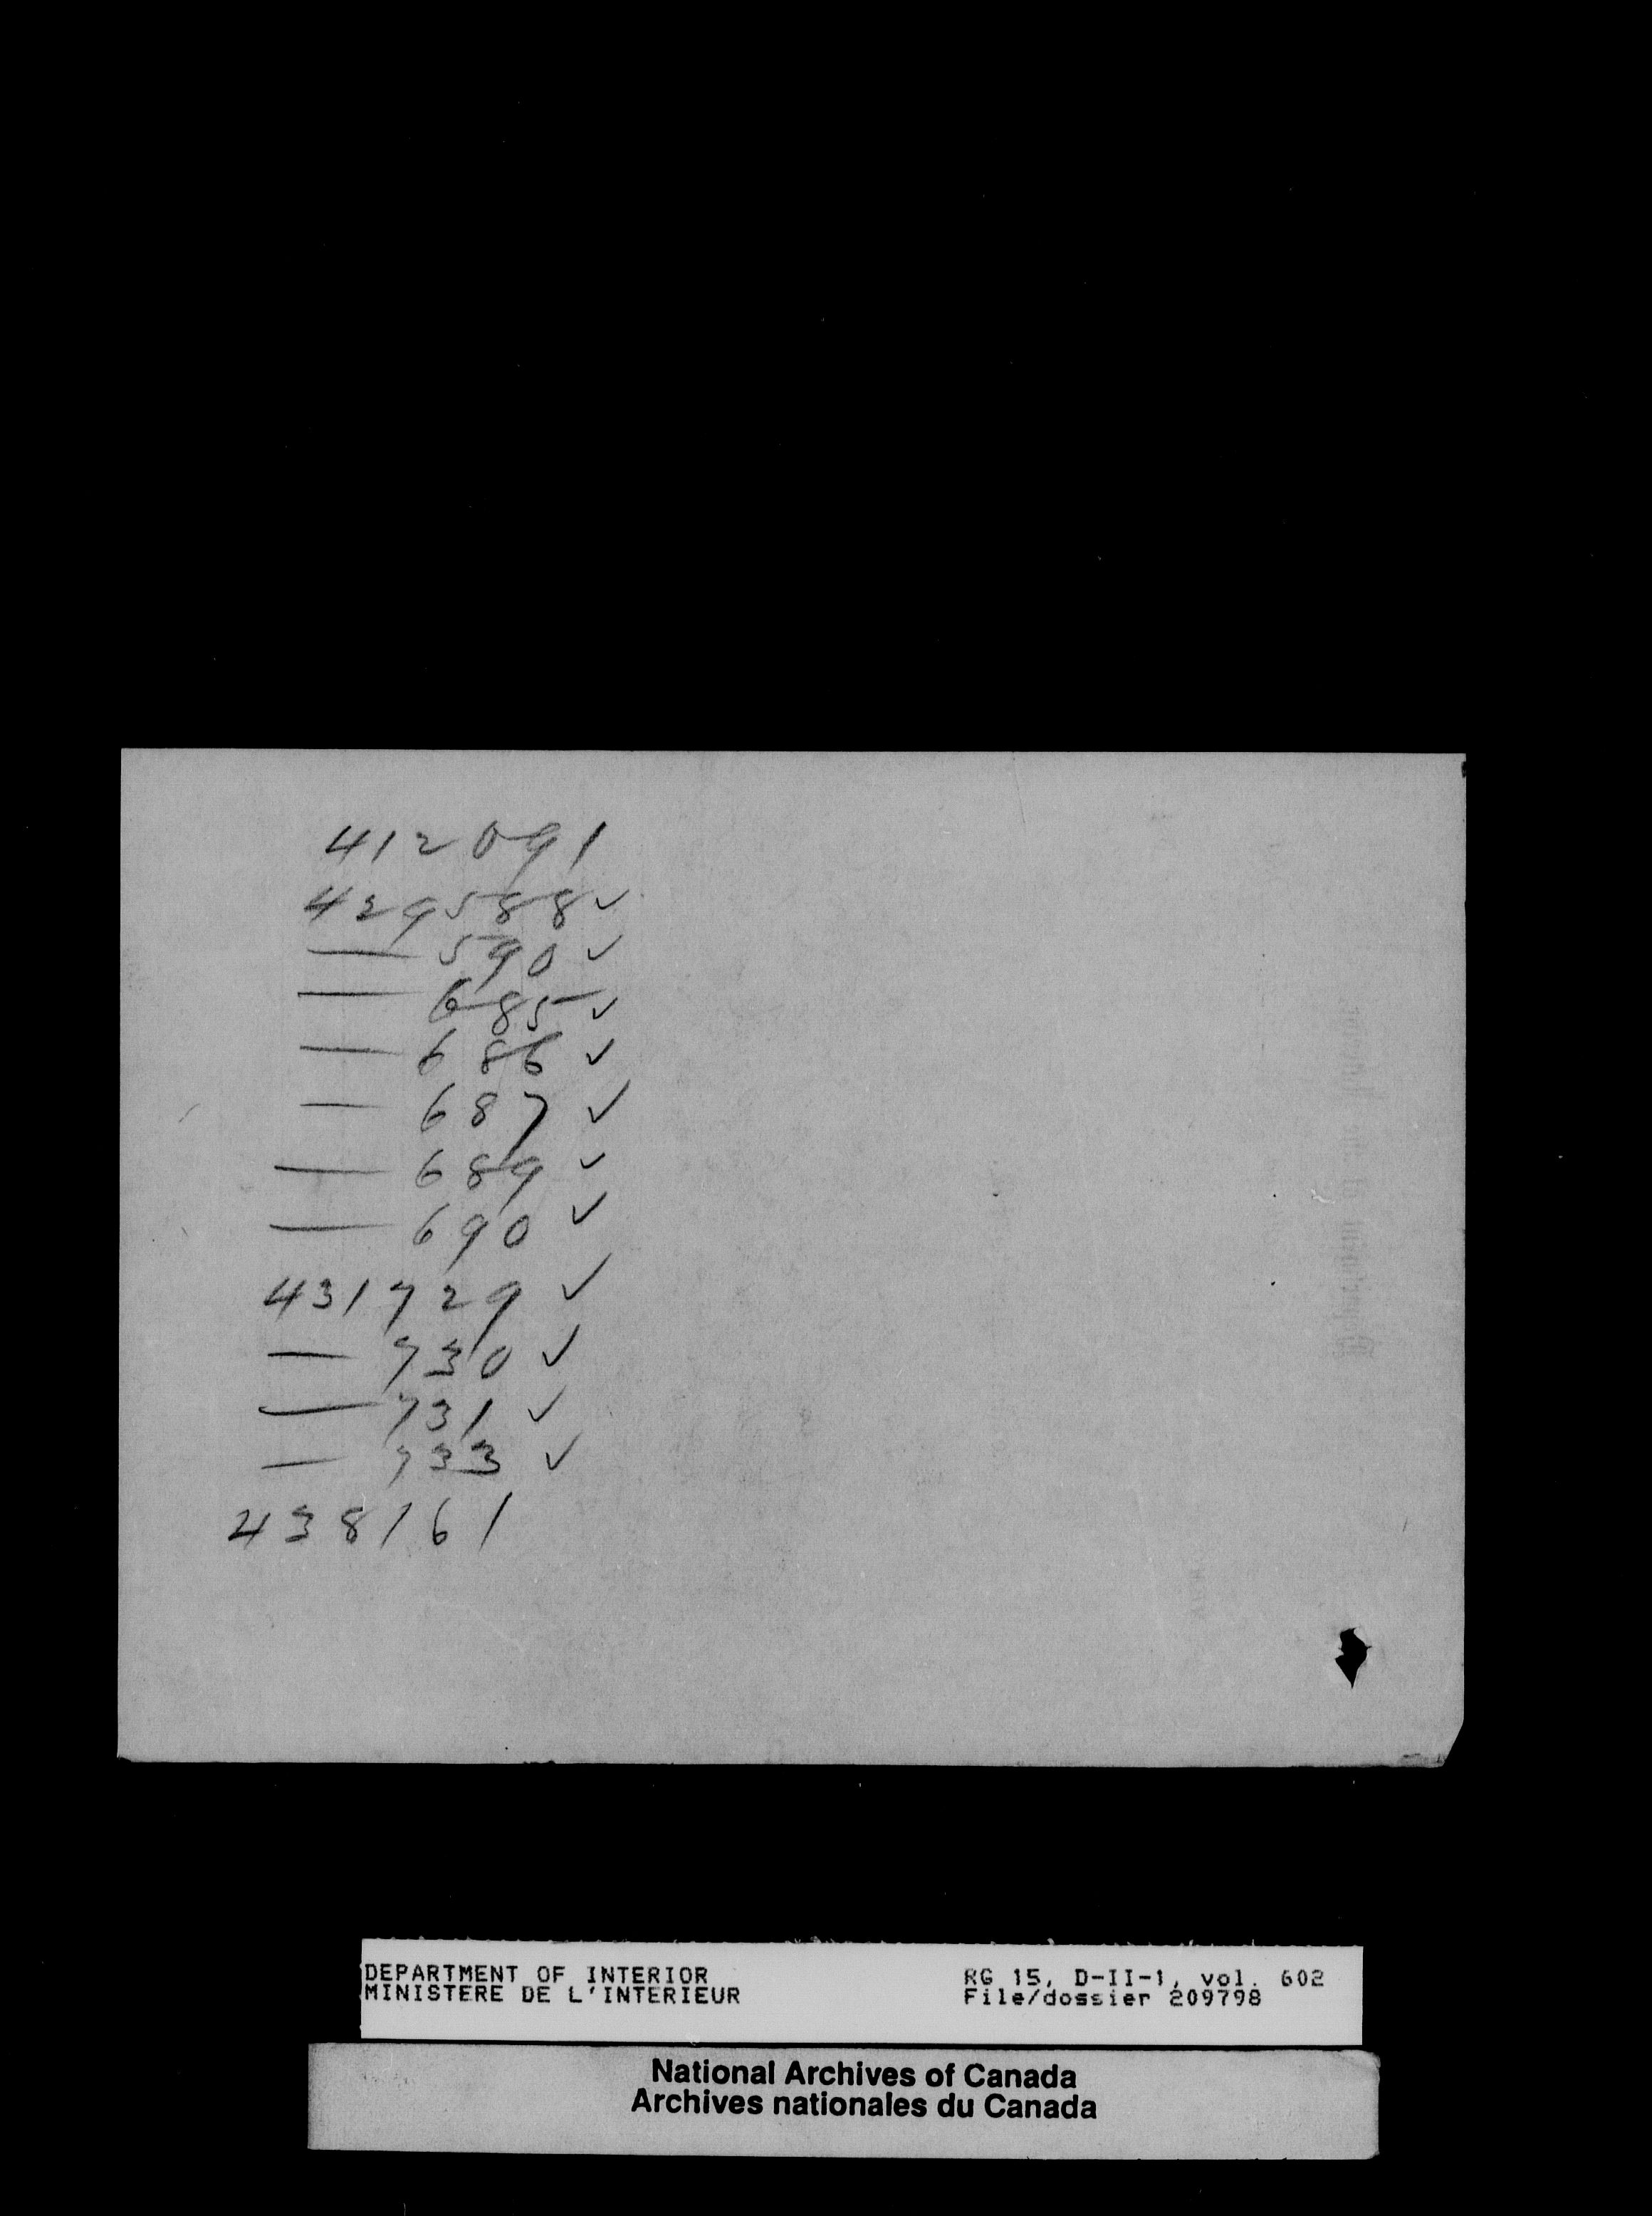 412091
429588 ✓
— 590 ✓
— 685 ✓
— 686 ✓
— 687 ✓
— 689 ✓
— 690 ✓
431729 ✓
— 730 ✓
— 731 ✓
— 733 ✓
438161
DEPARTMENT OF INTERIOR
MINISTERE DE L'INTERIEUR
RG 15, D-II-1, vol. 602
File/dossier 209798
National Archives of Canada
Archives nationales du Canada